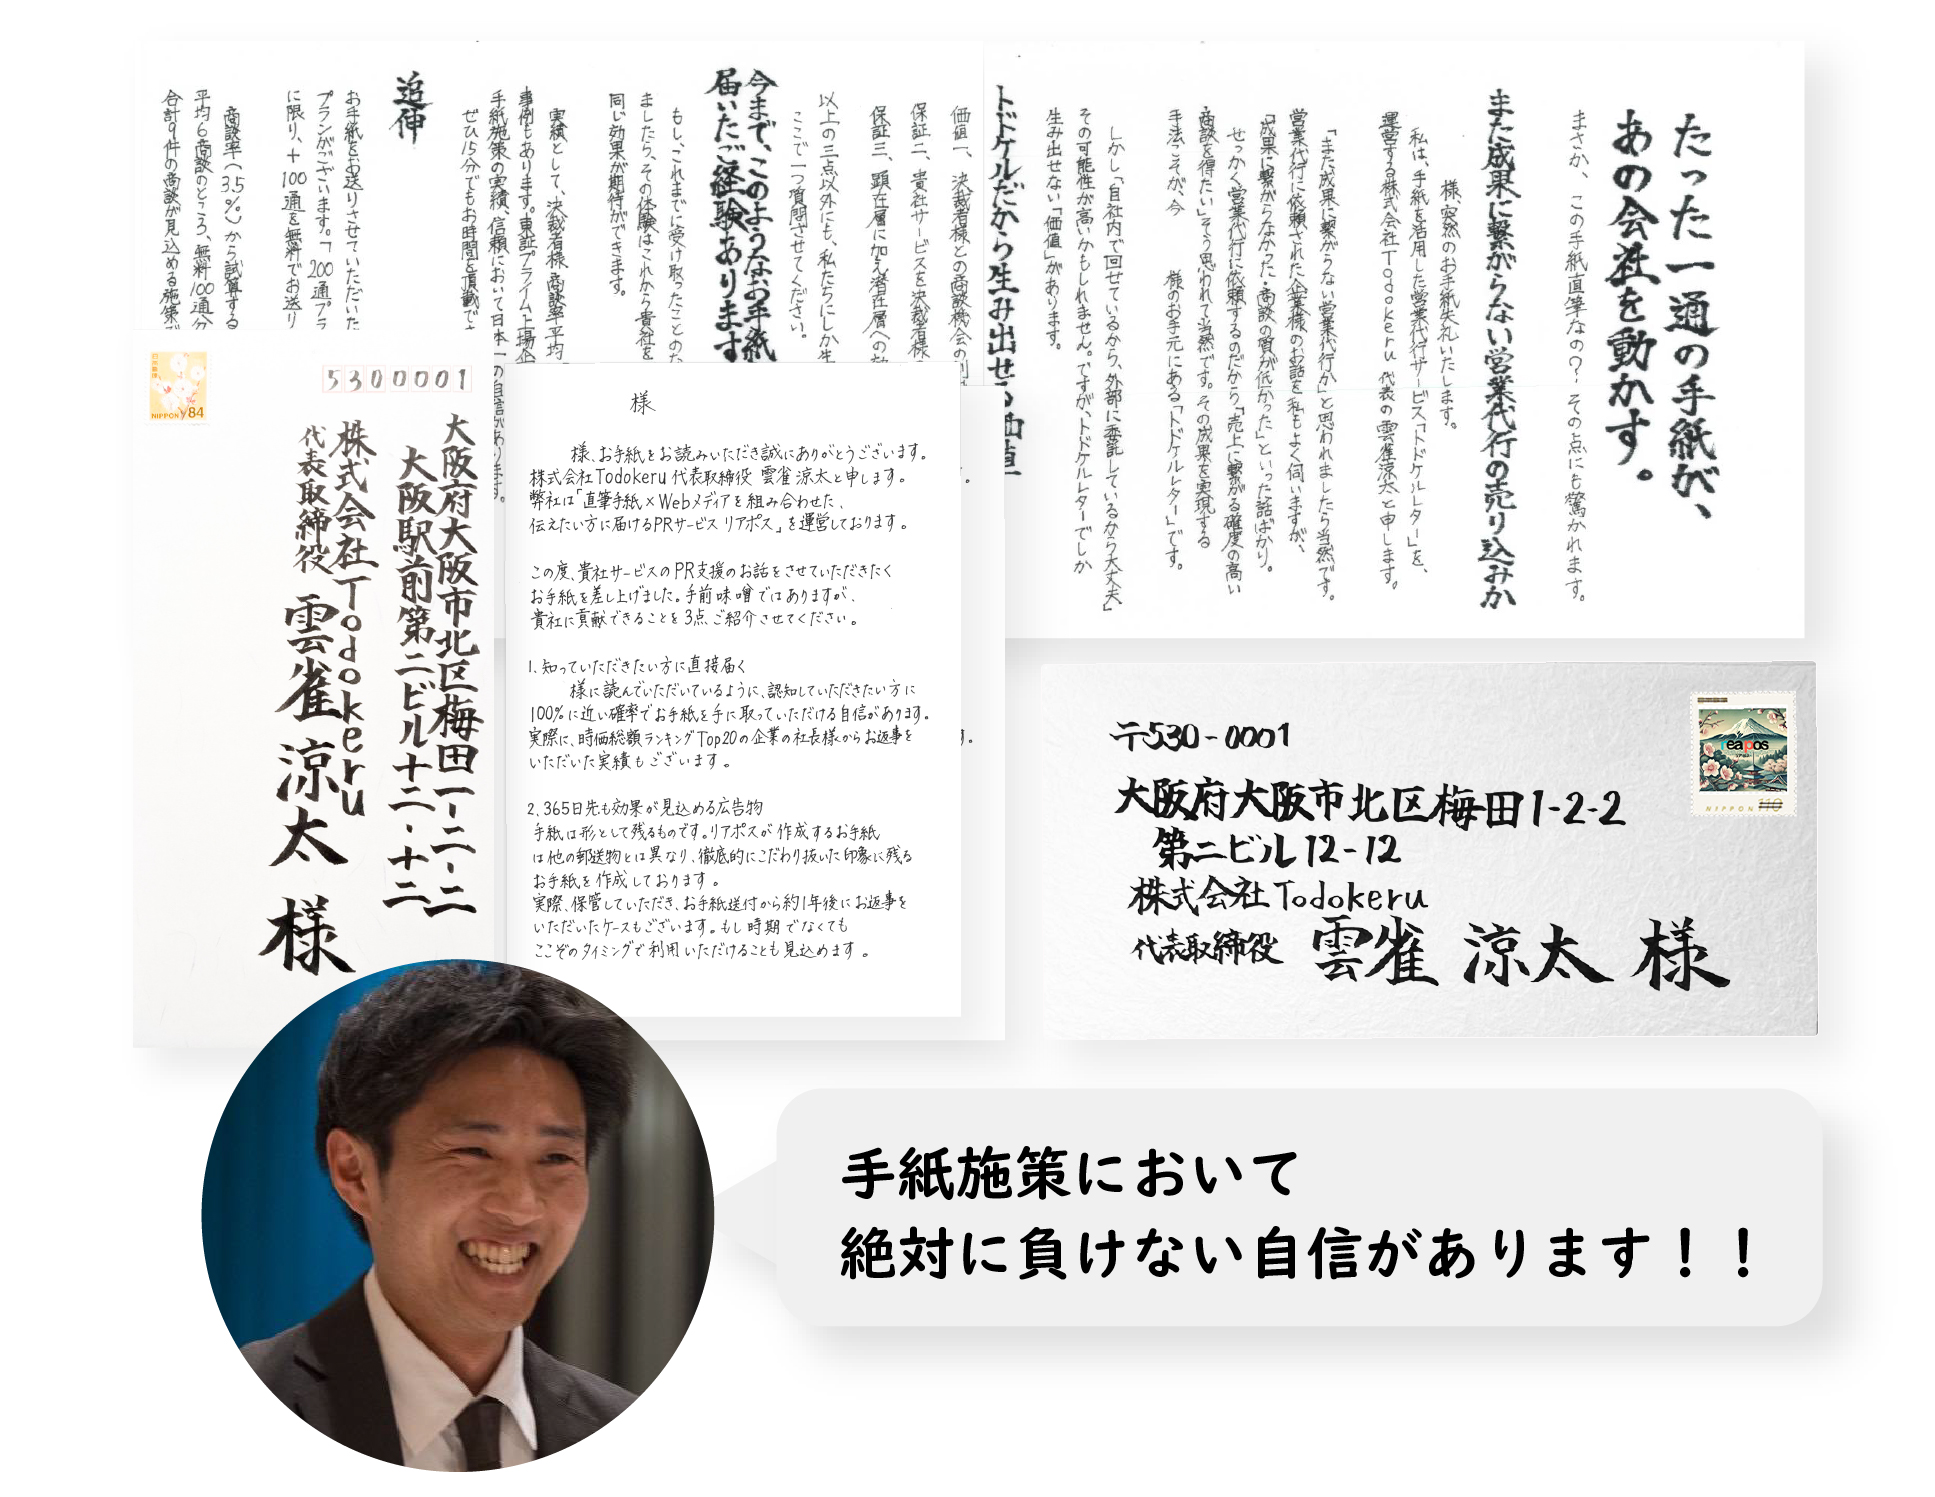 たった一通の手紙が、
あの会社を動かす。
まさか、この手紙直筆なの？-その点にも驚かれます。
また成果に繋がらない営業代行の売り込みか
様、突然のお手紙失礼いたします。
私は、手紙を活用した営業代行サービス「トドケルレター」を、
運営する株式会社Todokeru 代表の雲雀涼太と申します。
「また、成果に繋がらない営業代行か」と思われましたら当然です。
営業代行に依頼された企業様のお話を私もよく伺いますが、
「成果に繋がらなかった・商談の質が低かった」といった話ばかり。
せっかく営業代行に依頼するのだから「売上に繋がる確度の高い
商談を得たい」そう思われて当然です。その成果を実現する
手法こそが、今　様のお手元にある「トドケルレター」です。
しかし「自社内で回せているから、外部に委託しているから大丈夫」
その可能性が高いかもしれません。ですが、トドケルレターでしか
生み出せない「価値」があります。
トドケルだから生み出せる価値
価値一、決裁者様との商談機会の
保証二、貴社サービスを決裁者様
保証三、顕在層に加え潜在層への
以上の三点以外にも、私たちにしか生
ここで一つ質問させてください。
今まで、このようなお手紙
届いたご経験あります
もし、これまでに受け取ったことのな
ましたら、その体験はこれから貴社を
同じ効果が期待ができます。
実績として、決裁者様商談率平均
事例もあります。東証プライム上場企
手紙施策の実績、信頼において日本一の自信があります。
ぜひ15分でもお時間を頂戴でき
追伸
お手紙をお送りさせていただいた
プランがございます。「200通プラ
に限り、＋100通を無料でお送り
商談率(3.5%)から試算する
平均6商談のところ、無料100通分
合計9件の商談が見込める施策で
日本郵便
NIPPON 84
5300001
大阪府大阪市北区梅田一-二-二
大阪駅前第二ビル十二-十二
株式会社Todokeru
代表取締役 雲雀 涼太 様
様
様、お手紙をお読みいただき誠にありがとうございます。
株式会社Todokeru 代表取締役 雲雀 涼太と申します。
弊社は「直筆手紙×Webメディアを組み合わせた、
伝えたい方に届けるPRサービス リアポス」を運営しております。
この度、貴社サービスのPR支援のお話をさせていただきたく
お手紙を差し上げました。手前味噌ではありますが、
貴社に貢献できることを3点ご紹介させてください。
1. 知っていただきたい方に直接届く
様に読んでいただいているように、認知していただきたい方に
100%に近い確率でお手紙を手に取っていただける自信があります。
実際に、時価総額ランキングTop20の企業の社長様からお返事を
いただいた実績もございます。
2. 365日先も効果が見込める広告物
手紙は形として残るものです。リアポスが作成するお手紙
は他の郵送物とは異なり、徹底的にこだわり抜いた印象に残る
お手紙を作成しております。
実際、保管していただき、お手紙送付から約1年後にお返事を
いただいたケースもございます。もし時期でなくても
ここぞのタイミングで利用いただけることも見込めます。
〒530-0001
大阪府大阪市北区梅田1-2-2
第二ビル12-12
株式会社Todokeru
代表取締役 雲雀 涼太 様
reapos
NIPPON 110
手紙施策において
絶対に負けない自信があります！！